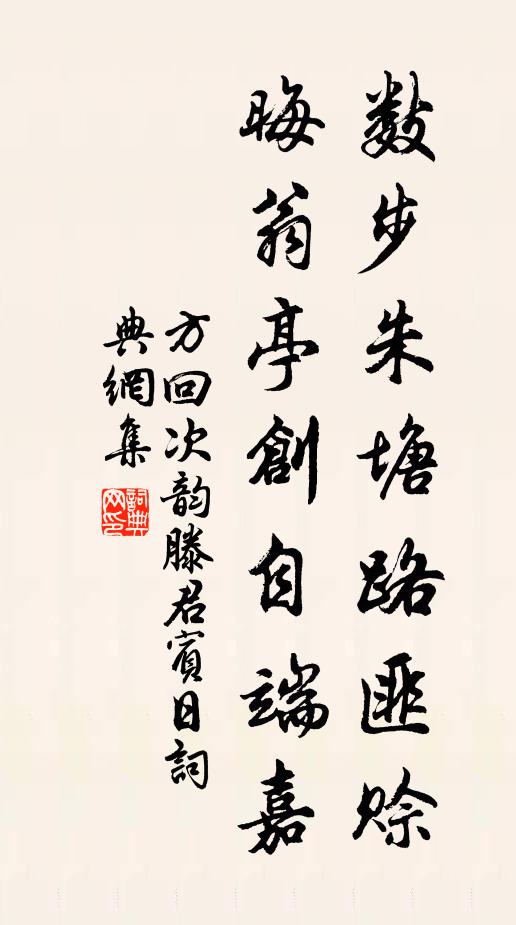 數步朱塘路匪賒
晦翁亭創自端嘉
方回次韵滕君賓日詞
典網集
詞典網印